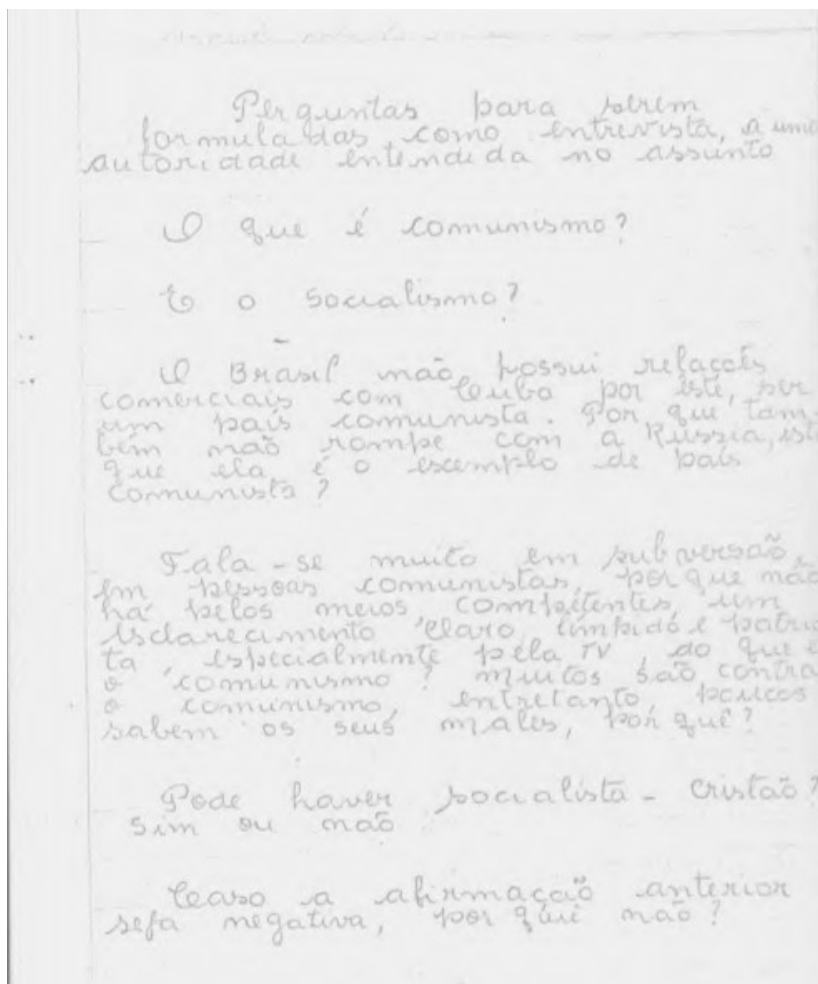 Perguntas para serem
formuladas como entrevista, a uma
autoridade entendida no assunto
O que é comunismo?
E o socialismo?
O Brasil não possui relações
comerciais com Cuba por este, ser
um país comunista. Por que tam-
bém não rompe com a Rússia,
que ela é o exemplo de país
comunista?
Fala-se muito em subversão,
em pessoas comunistas, por que não
há pelos meios competentes, um
esclarecimento claro, límpido e patrio
ta, especialmente pela TV, do que é
o comunismo? muitos são contra
o comunismo, entretanto, poucos
sabem os seus males, por quê?
Pode haver socialista - cristão?
Sim ou não
Caso a afirmação anterior
seja negativa, por que não?